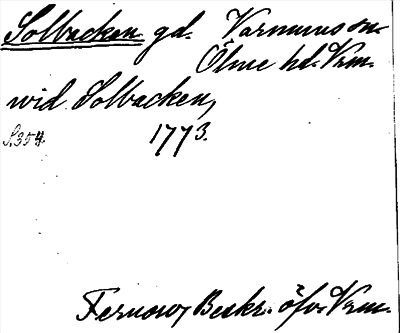 Solbacken gd. Varnums sn.
Ölme hd. Vrm.
wid Solbacken,
S.354. 1773.
Fernow, Beskr. öfv. Vrm.